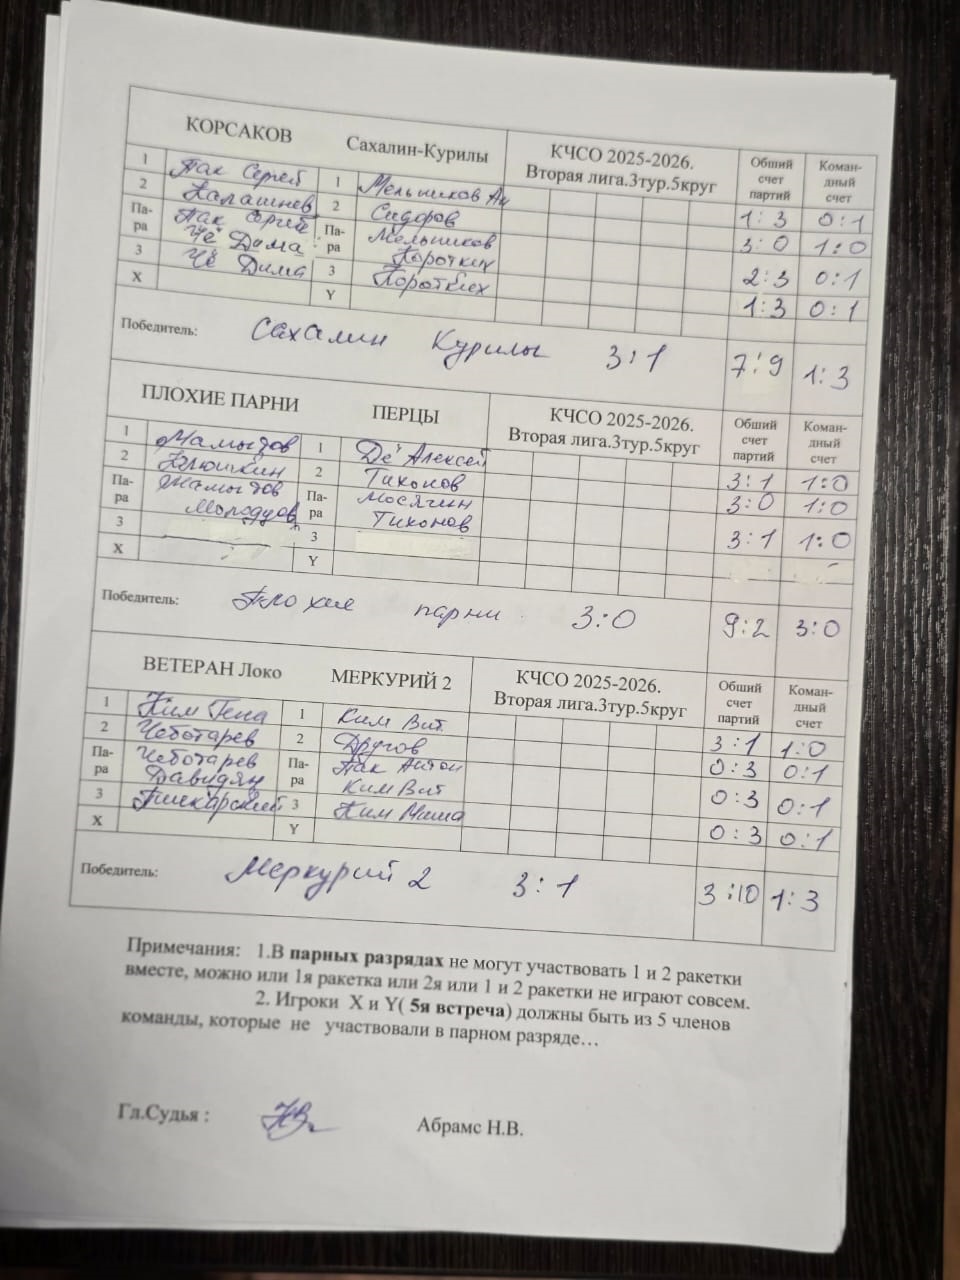 КОРСАКОВ Сахалин-Курилы КЧСО 2025-2026. Вторая лига.3тур.5круг Общий счет партий Коман- дный счет
1 Пак Сергей 1 Мельников Ан 1:3 0:1
2 Калашнев 2 Сидоров 3:0 1:0
Па- ра Пак Сергей Па- ра Мельников 2:3 0:1
Че Дима Коротких
3 Че Дима 3 Коротких 1:3 0:1
X Y
Победитель: Сахалин Курилы 3:1 7:9 1:3
ПЛОХИЕ ПАРНИ ПЕРЦЫ КЧСО 2025-2026. Вторая лига.3тур.5круг Общий счет партий Коман- дный счет
1 Мамытов 1 Де Алексей 3:1 1:0
2 Клюшкин 2 Тихонов 3:0 1:0
Па- ра Мамытов Па- ра Мосягин 3:1 1:0
Тихонов
3 3
X Y
Победитель: Плохие парни 3:0 9:2 3:0
ВЕТЕРАН Локо МЕРКУРИЙ 2 КЧСО 2025-2026. Вторая лига.3тур.5круг Общий счет партий Коман- дный счет
1 Ким Гена 1 Ким Вит. 3:1 1:0
2 Чеботарев 2 Другов 0:3 0:1
Па- ра Чеботарев Па- ра Пак Антон 0:3 0:1
Давидян Ким Вит
3 Пшекарский 3 Ким Маша 0:3 0:1
X Y
Победитель: Меркурий 2 3:1 3:10 1:3
Примечания: 1.В парных разрядах не могут участвовать 1 и 2 ракетки
вместе, можно или 1я ракетка или 2я или 1 и 2 ракетки не играют совсем.
2. Игроки X и Y( 5я встреча) должны быть из 5 членов
команды, которые не участвовали в парном разряде…
Гл.Судья : Абрамс Н.В.